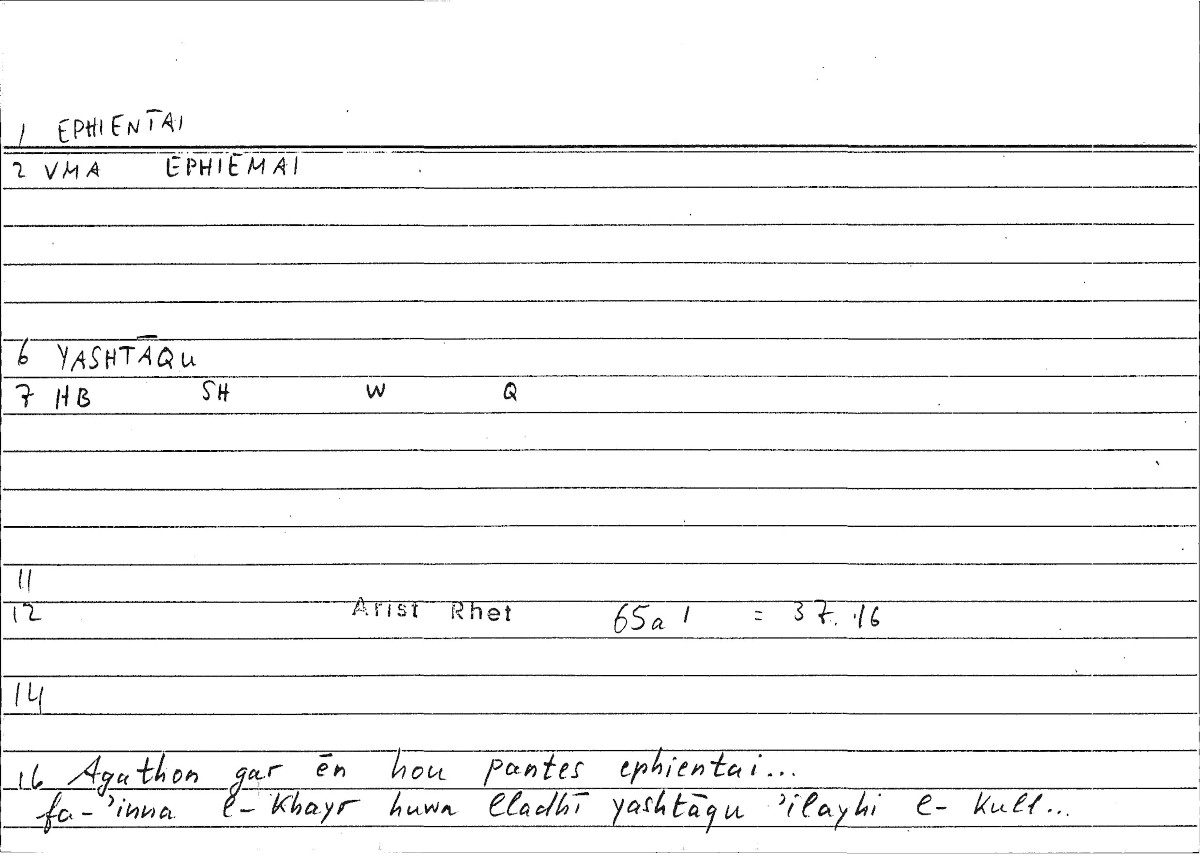 1 EPHIENTAI
2 VMA EPHIEMAI
6 YASHTĀQU
7 HB SH W Q
11
12 Arist Rhet 65a 1 = 37.16
14
16 Agathon gar ēn hou pantes ephientai...
fa-'inna l-khayr huwa lladhī yashtāqu 'ilayhi l-kull...